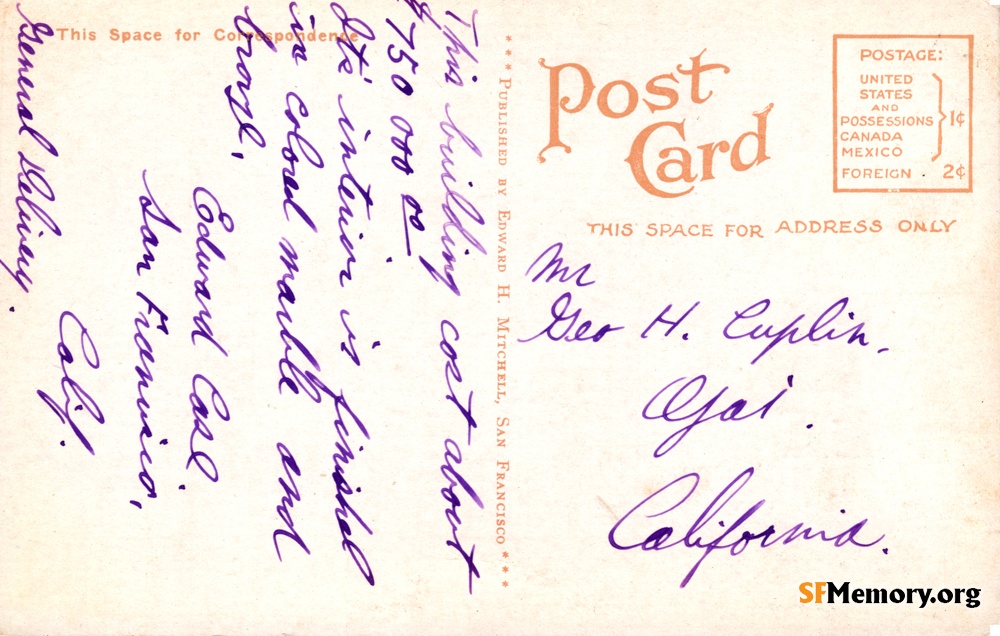 This Space for Correspondence
This building cost about
$750 000 00
It's interior is finished
in colored marble and
bronze.
Edward Case
San Francisco,
Calif.
General Delivery.
*** PUBLISHED BY EDWARD H. MITCHELL, SAN FRANCISCO ***
Post
Card
POSTAGE:
UNITED
STATES
AND
POSSESSIONS
CANADA
MEXICO
1¢
FOREIGN 2¢
THIS SPACE FOR ADDRESS ONLY
Mr
Geo H. Cuplin.
Ojai.
California.
SFMemory.org